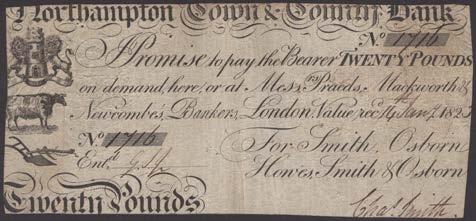 Northampton Town & County Bank
No. 1716
I Promise to pay the Bearer TWENTY POUNDS
on demand, here, or at Messrs Praeds, Mackworth &
Newcombe's, Bankers, London, Value recd 182
No. 1716 For Smith, Osborn
Entd Howes, Smith & Osborn
Twenty Pounds
Chas Smith